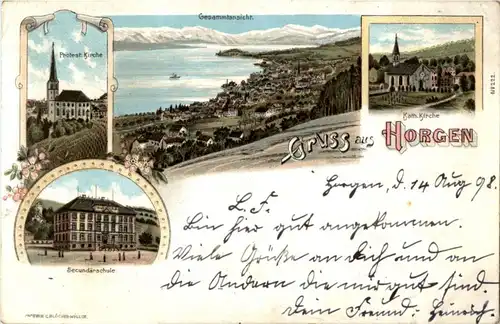 Gesammtansicht.
Protest. Kirche
Kath. Kirche
Gruss aus HORGEN
Secundarschule
Horgen, d. 14 Aug 98.
L. F.
Bin hier gut angekommen.
Viele Grüße an Dich und an
die Andern die mir gut sind.
Dein Freund: Heinrich.